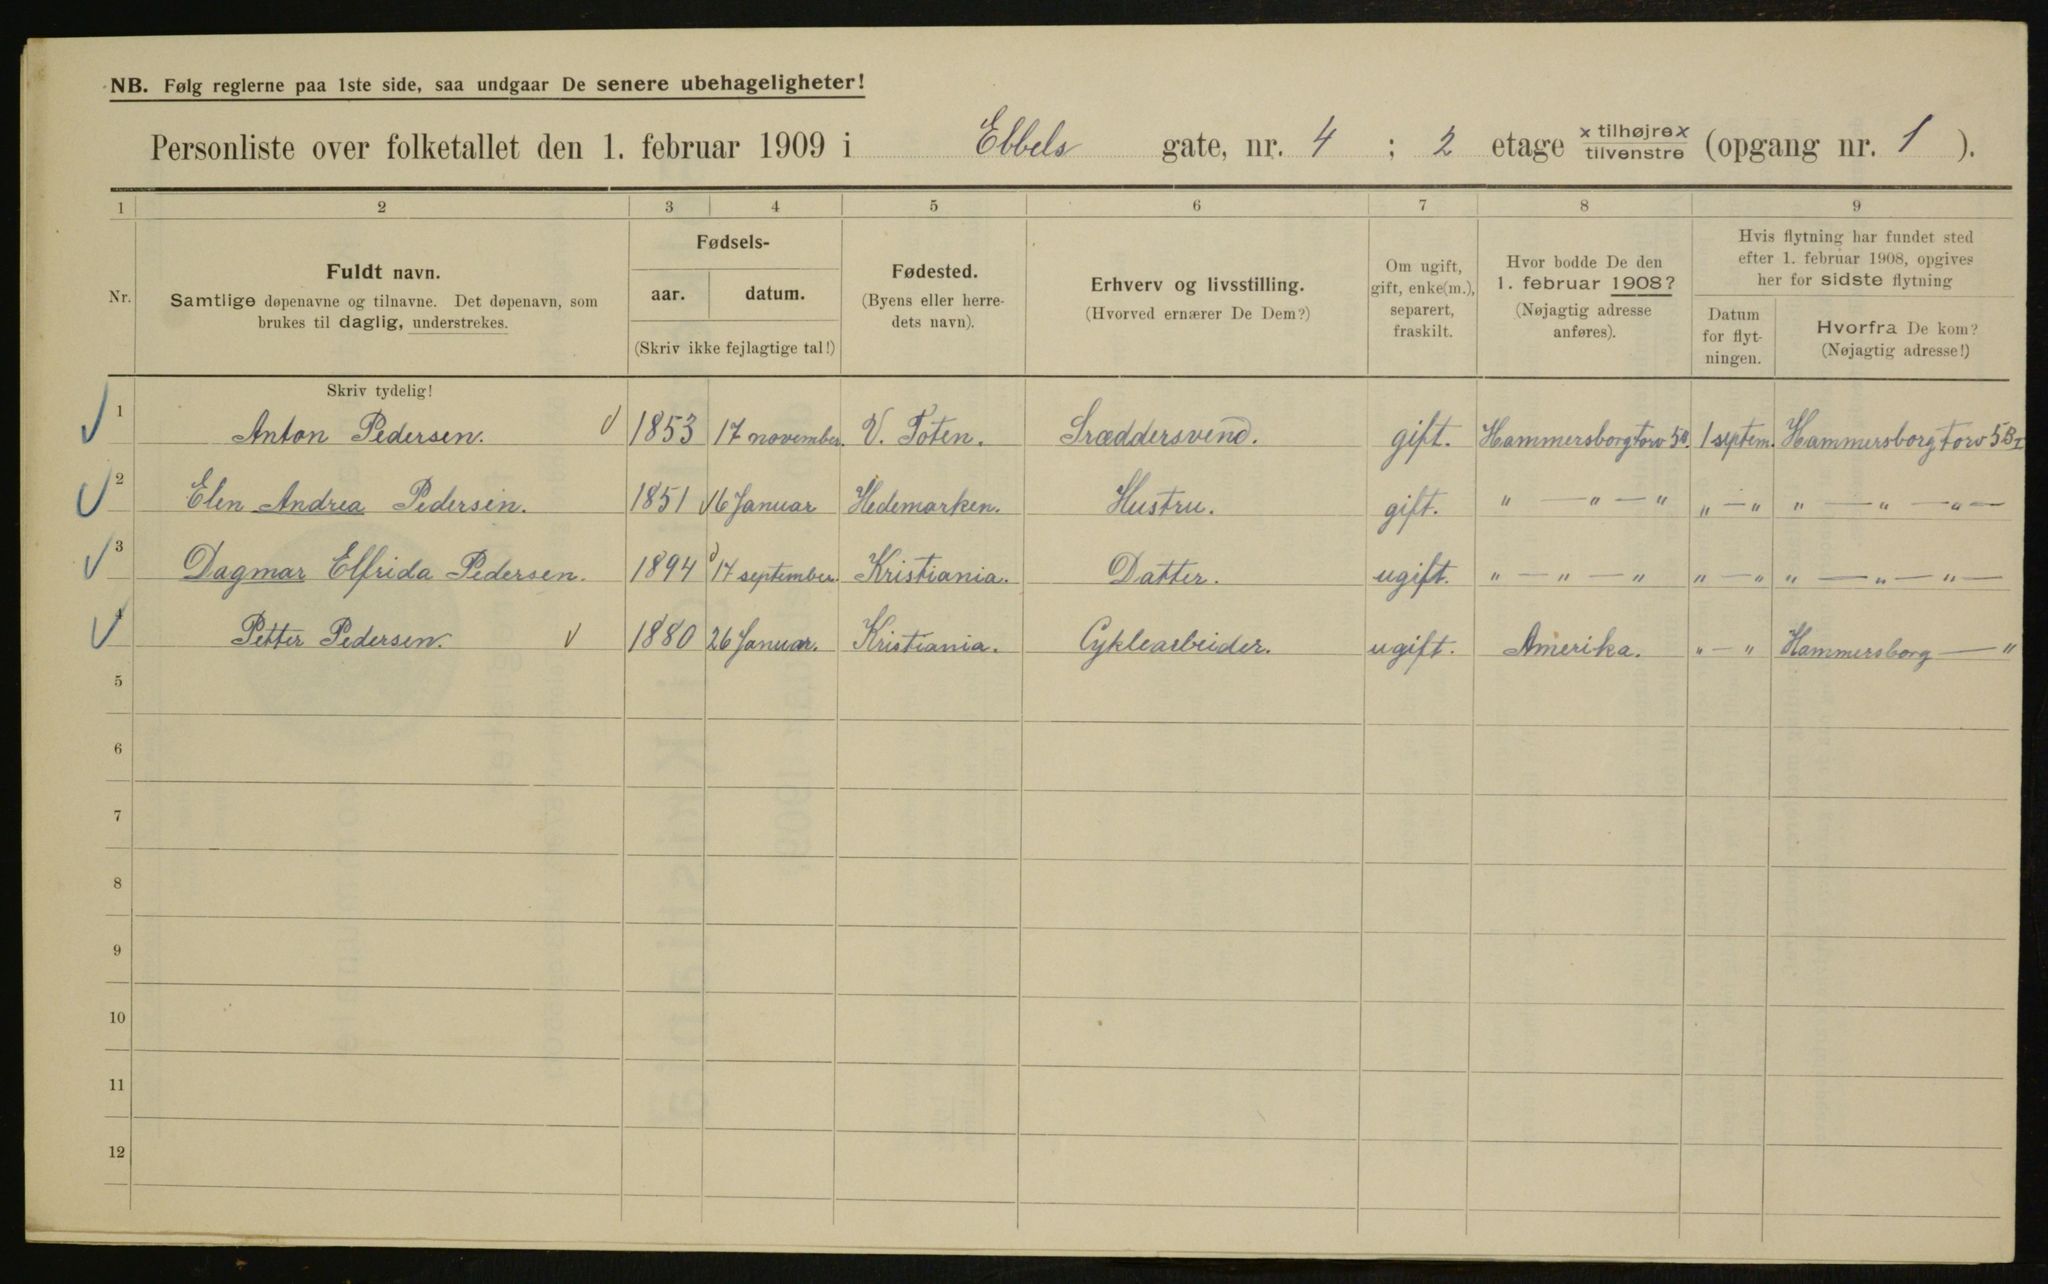 NB. Følg reglerne paa 1ste side, saa undgaar De senere ubehageligheter!
Personliste over folketallet den 1. februar 1909 i Ebbels gate, nr. 4 ; 2 etage x tilhøjre x / tilvenstre (opgang nr. 1 ).
1 2 3 4 5 6 7 8 9
Nr.
Fuldt navn.
Samtlige døpenavne og tilnavne. Det døpenavn, som
brukes til daglig, understrekes.
Fødsels-
aar. datum.
(Skriv ikke fejlagtige tal!)
Fødested.
(Byens eller herre-
dets navn).
Erhverv og livsstilling.
(Hvorved ernærer De Dem?)
Om ugift,
gift, enke(m.),
separert,
fraskilt.
Hvor bodde De den
1. februar 1908?
(Nøjagtig adresse
anføres).
Hvis flytning har fundet sted
efter 1. februar 1908, opgives
her for sidste flytning
Datum
for flyt-
ningen.
Hvorfra De kom?
(Nøjagtig adresse!)
Skriv tydelig!
1 Anton Pedersen. 1853 17 november. V. Toten. Sræddersvend. gift. Hammersborgtorv 5B. 1 septem. Hammersborg torv 5B I
2 Elen Andrea Pedersen. 1851 16 Januar Hedemarken. Hustru. gift. " — " — " " — " " — " — " —
3 Dagmar Elfrida Pedersen. 1894 17 september. Kristiania. Datter. ugift. " — " — " " — " " — " — " —
4 Petter Pedersen. 1880 26 Januar. Kristiania. Cyklearbeider. ugift. Amerika. " — " Hammersborg — "
5
6
7
8
9
10
11
12